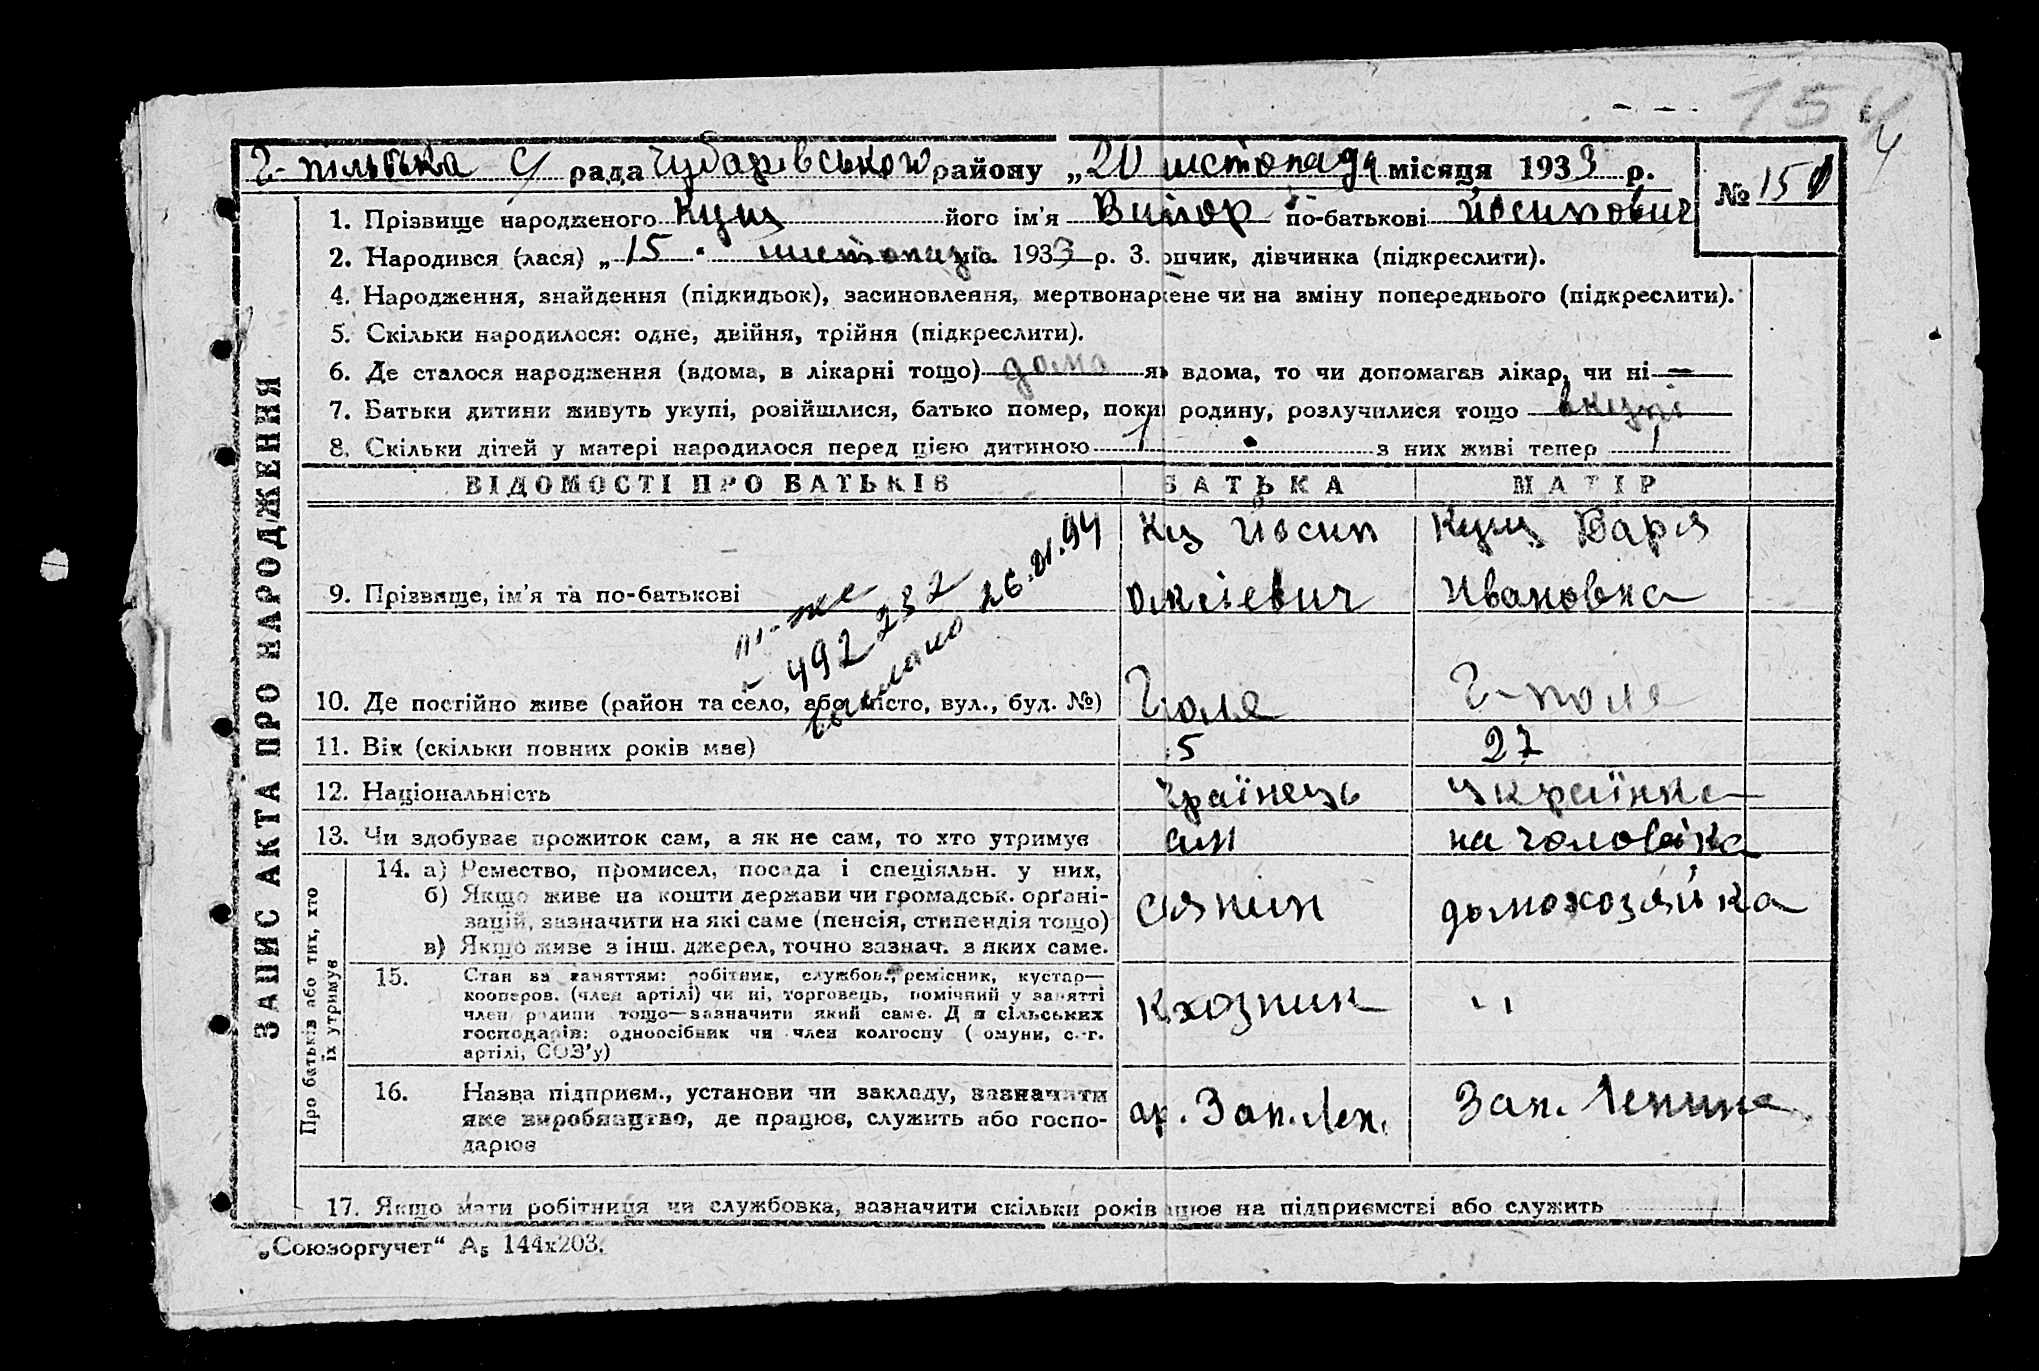 154
Г-пільська с/рада Чубарівського району „20 листопада місяця 1933 р.
№ 150
1. Прізвище народженого Кущ його ім'я Вилор по-батькові Йосипович
2. Народився (лася) „15 листопада міс. 1933 р. 3. опчик, дівчинка (підкреслити).
4. Народження, знайдення (підкидьок), засиновлення, мертвонаржене чи на зміну попереднього (підкреслити).
5. Скільки народилося: одне, двійня, трійня (підкреслити).
6. Де сталося народження (вдома, в лікарні тощо) дома як вдома, то чи допомагав лікар, чи ні —
7. Батьки дитини живуть укупі, розійшлися, батько помер, поки родину, розлучилися тощо вкупі
8. Скільки дітей у матері народилося перед цією дитиною 1 з них живі тепер 1
ЗАПИС АКТА ПРО НАРОДЖЕННЯ
ВІДОМОСТІ ПРО БАТЬКІВ БАТЬКА МАТІР
9. Прізвище, ім'я та по-батькові
Кущ Йосип
Кущ Варя Ивановна
492232
26.01.94
10. Де постійно живе (район та село, або місто, вул., буд. №) Г поле Г-поле
11. Вік (скільки повних років має) 5 27
12. Національність Украінець Українка
13. Чи здобуває прожиток сам, а як не сам, то хто утримує сам на чоловіка
Про батьків або тих, хто їх утримує
14. а) Ремество, промисел, посада і спеціяльн. у них,
б) Якщо живе на кошти держави чи громадськ. орґані-
зацій, зазначити на які саме (пенсія, стипендія тощо)
в) Якщо живе з інш. джерел, точно зазнач. з яких саме.
домохозяйка
15. Стан за заняттям: робітник, службов., ремісник, кустар—
кооперов. (член артілі) чи ні, торговець, помічний у занятті
член родини тощо—зазначити який саме. Д я сільських
господарів: одноосібник чи член колгоспу ( омуни, с.-г.
артілі, СОЗ'у)
16. Назва підприєм., установи чи закладу, зазначити
яке виробництво, де працює, служить або госпо-
дарює
ар. Зап. Лен. Зап. Ленина
17. Якщо мати робітниця чи службовка, зазначити скільки років ацює на підприємстві або служить
„Союзоргучет“ А₅ 144х203.